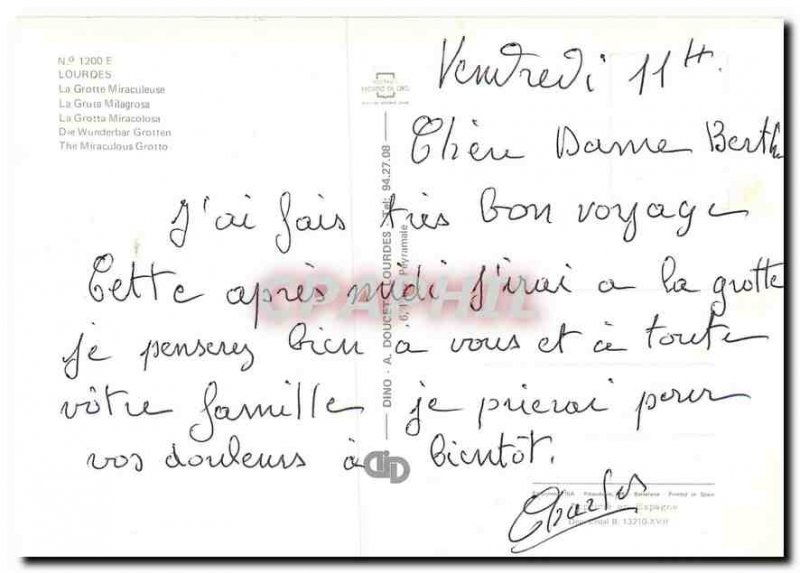 N.º 1200 E
LOURDES
La Grotte Miraculeuse
La Gruta Milagrosa
La Grotta Miracolosa
Die Wunderbar Grotten
The Miraculous Grotto
Vendredi 11 H.
Chère Dame Berth
J'ai fais très bon voyage
Cette après midi j'irai a la grotte
je penserez bien a vous et à toute
vôtre famille je prierai pour
vos douleurs à bientôt.
Charles
DINO - A. DOUCET - LOURDES - Tel: 94.27.08
Peyramale
KPAPHIL
Printed in Spain
Espagne
B. 13210-XVII